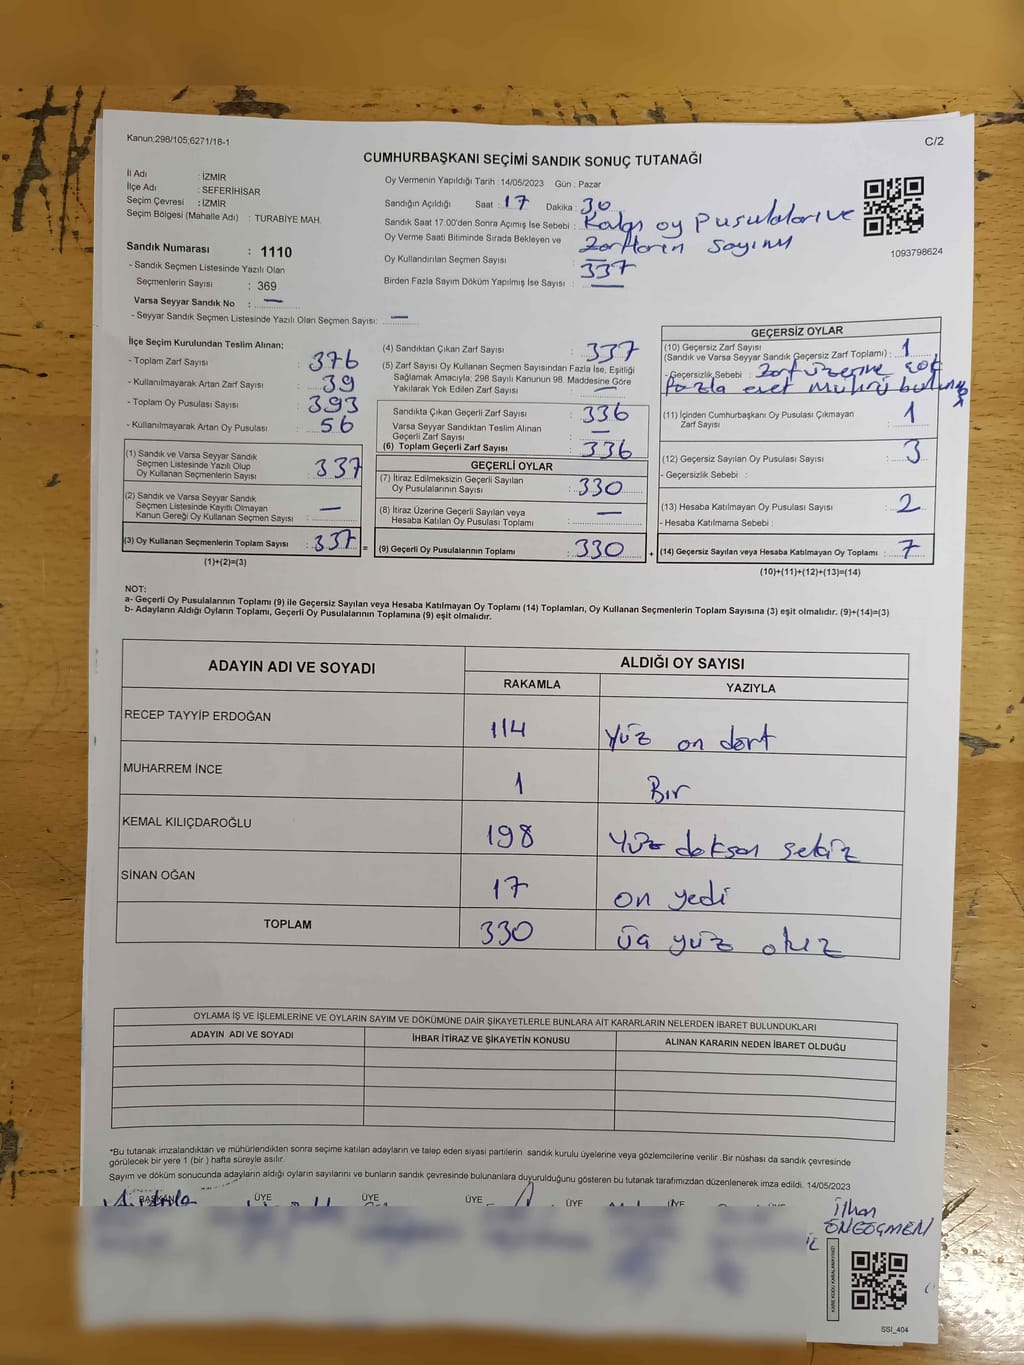 Kanun;298/105;6271/18-1
C/2
CUMHURBAŞKANI SEÇİMİ SANDIK SONUÇ TUTANAĞI
İl Adı : İZMİR
İlçe Adı : SEFERİHİSAR
Seçim Çevresi : İZMİR
Seçim Bölgesi (Mahalle Adı) : TURABİYE MAH.
Sandık Numarası : 1110
- Sandık Seçmen Listesinde Yazılı Olan
Seçmenlerin Sayısı : 369
Varsa Seyyar Sandık No : —
- Seyyar Sandık Seçmen Listesinde Yazılı Olan Seçmen Sayısı: —
Oy Vermenin Yapıldığı Tarih : 14/05/2023 Gün : Pazar
Sandığın Açıldığı Saat : 17 Dakika : 30
Sandık Saat 17:00'den Sonra Açımış İse Sebebi : Kalan oy pusulaları ve
Oy Verme Saati Bitiminde Sırada Bekleyen ve Zarfların sayımı
Oy Kullandırılan Seçmen Sayısı : 337
Birden Fazla Sayım Döküm Yapılmış İse Sayısı : —
1093798624
İlçe Seçim Kurulundan Teslim Alınan;
- Toplam Zarf Sayısı : 376
- Kullanılmayarak Artan Zarf Sayısı : 39
- Toplam Oy Pusulası Sayısı : 393
- Kullanılmayarak Artan Oy Pusulası : 56
(1) Sandık ve Varsa Seyyar Sandık
Seçmen Listesinde Yazılı Olup
Oy Kullanan Seçmenlerin Sayısı : 337
(2) Sandık ve Varsa Seyyar Sandık
Seçmen Listesinde Kayıtlı Olmayan
Kanun Gereği Oy Kullanan Seçmen Sayısı : —
(3) Oy Kullanan Seçmenlerin Toplam Sayısı : 337 =
(1)+(2)=(3)
(4) Sandıktan Çıkan Zarf Sayısı : 337
(5) Zarf Sayısı Oy Kullanan Seçmen Sayısından Fazla İse, Eşitliği
Sağlamak Amacıyla; 298 Sayılı Kanunun 98. Maddesine Göre
Yakılarak Yok Edilen Zarf Sayısı : —
Sandıkta Çıkan Geçerli Zarf Sayısı : 336
Varsa Seyyar Sandıktan Teslim Alınan
Geçerli Zarf Sayısı : —
(6) Toplam Geçerli Zarf Sayısı : 336
GEÇERLİ OYLAR
(7) İtiraz Edilmeksizin Geçerli Sayılan
Oy Pusulalarının Sayısı : 330
(8) İtiraz Üzerine Geçerli Sayılan veya
Hesaba Katılan Oy Pusulası Toplamı : —
(9) Geçerli Oy Pusulalarının Toplamı : 330 +
GEÇERSİZ OYLAR
(10) Geçersiz Zarf Sayısı
(Sandık ve Varsa Seyyar Sandık Geçersiz Zarf Toplamı) : 1
- Geçersizlik Sebebi : Zarf üzerine çok
fazla evet mührü
(11) İçinden Cumhurbaşkanı Oy Pusulası Çıkmayan
Zarf Sayısı : 1
(12) Geçersiz Sayılan Oy Pusulası Sayısı : 3
- Geçersizlik Sebebi :
(13) Hesaba Katılmayan Oy Pusulası Sayısı : 2
- Hesaba Katılmama Sebebi :
(14) Geçersiz Sayılan veya Hesaba Katılmayan Oy Toplamı : 7
(10)+(11)+(12)+(13)=(14)
NOT:
a- Geçerli Oy Pusulalarının Toplamı (9) ile Geçersiz Sayılan veya Hesaba Katılmayan Oy Toplamı (14) Toplamları, Oy Kullanan Seçmenlerin Toplam Sayısına (3) eşit olmalıdır. (9)+(14)=(3)
b- Adayların Aldığı Oyların Toplamı, Geçerli Oy Pusulalarının Toplamına (9) eşit olmalıdır.
ADAYIN ADI VE SOYADI
ALDIĞI OY SAYISI
RAKAMLA YAZIYLA
RECEP TAYYİP ERDOĞAN 114 Yüz on dört
MUHARREM İNCE 1 Bir
KEMAL KILIÇDAROĞLU 198 Yüz doksan sekiz
SİNAN OĞAN 17 on yedi
TOPLAM 330 üç yüz otuz
OYLAMA İŞ VE İŞLEMLERİNE VE OYLARIN SAYIM VE DÖKÜMÜNE DAİR ŞİKAYETLERLE BUNLARA AİT KARARLARIN NELERDEN İBARET BULUNDUKLARI
ADAYIN ADI VE SOYADI İHBAR İTİRAZ VE ŞİKAYETİN KONUSU ALINAN KARARIN NEDEN İBARET OLDUĞU
*Bu tutanak imzalandıktan ve mühürlendikten sonra seçime katılan adayların ve talep eden siyasi partilerin sandık kurulu üyelerine veya gözlemcilerine verilir .Bir nüshası da sandık çevresinde
görülecek bir yere 1 (bir ) hafta süreyle asılır.
Sayım ve döküm sonucunda adayların aldığı oyların sayılarını ve bunların sandık çevresinde bulunanlara duyurulduğunu gösteren bu tutanak tarafımızdan düzenlenerek imza edildi. 14/05/2023
BAŞKAN ÜYE ÜYE ÜYE ÜYE ÜYE
İlhan
ÖNGÖÇMEN
SSI_404